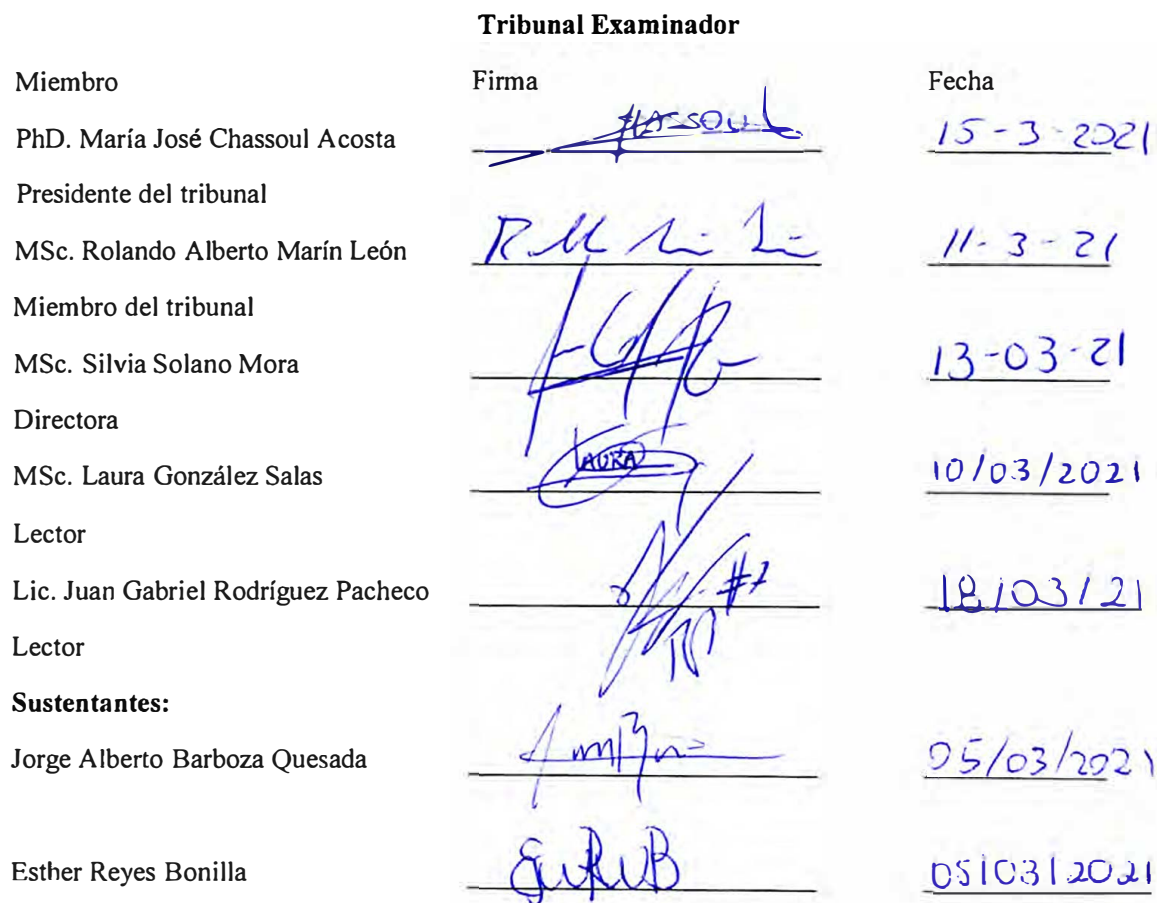 Tribunal Examinador
Miembro Firma Fecha
PhD. María José Chassoul Acosta Chassoul 15-3-2021
Presidente del tribunal
MSc. Rolando Alberto Marín León 11-3-21
Miembro del tribunal
MSc. Silvia Solano Mora 13-03-21
Directora
MSc. Laura González Salas LAURA 10/03/2021
Lector
Lic. Juan Gabriel Rodríguez Pacheco 18/03/21
Lector
Sustentantes:
Jorge Alberto Barboza Quesada 05/03/2021
Esther Reyes Bonilla 05/03/2021